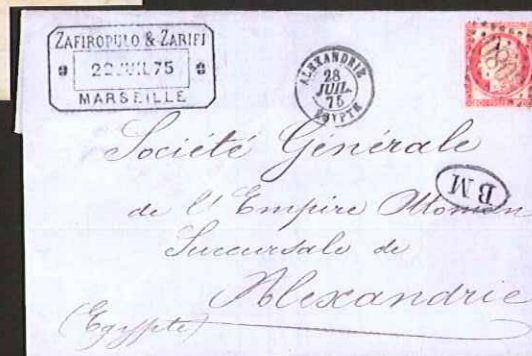 ZAFIROPULO & ZARIFI
22 JUIL 75
MARSEILLE
ALEXANDRIE
28
JUIL.
75
EGYPTE
Société Générale
BM
de l'Empire Ottoman
Succursale de
Alexandrie
(Egypte)